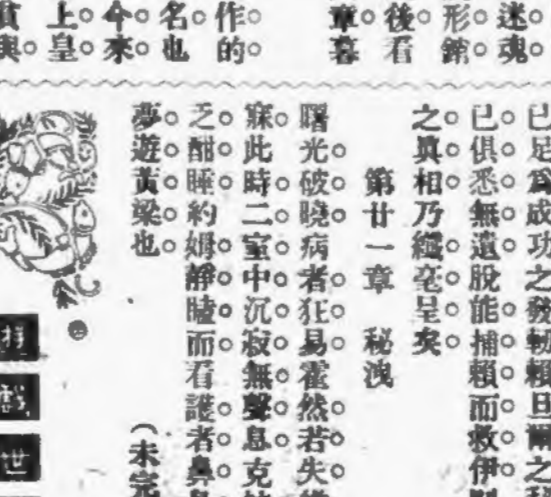 迷魂
形館
後看
章暮
作的
名也
今來
上皇
貧與
已足為成功之發軔賴旦爾之
已俱悉無遺脫能捕賴而救伊
之真相乃纖毫呈矣
第廿一章 秘洩
曙光破曉病者狂易霍然若失
寐此時二室中沉寂無聲息克
乏酣睡約姆靜瞌而看護者鼻
夢遊黃粱也
(未完
游
戲
世